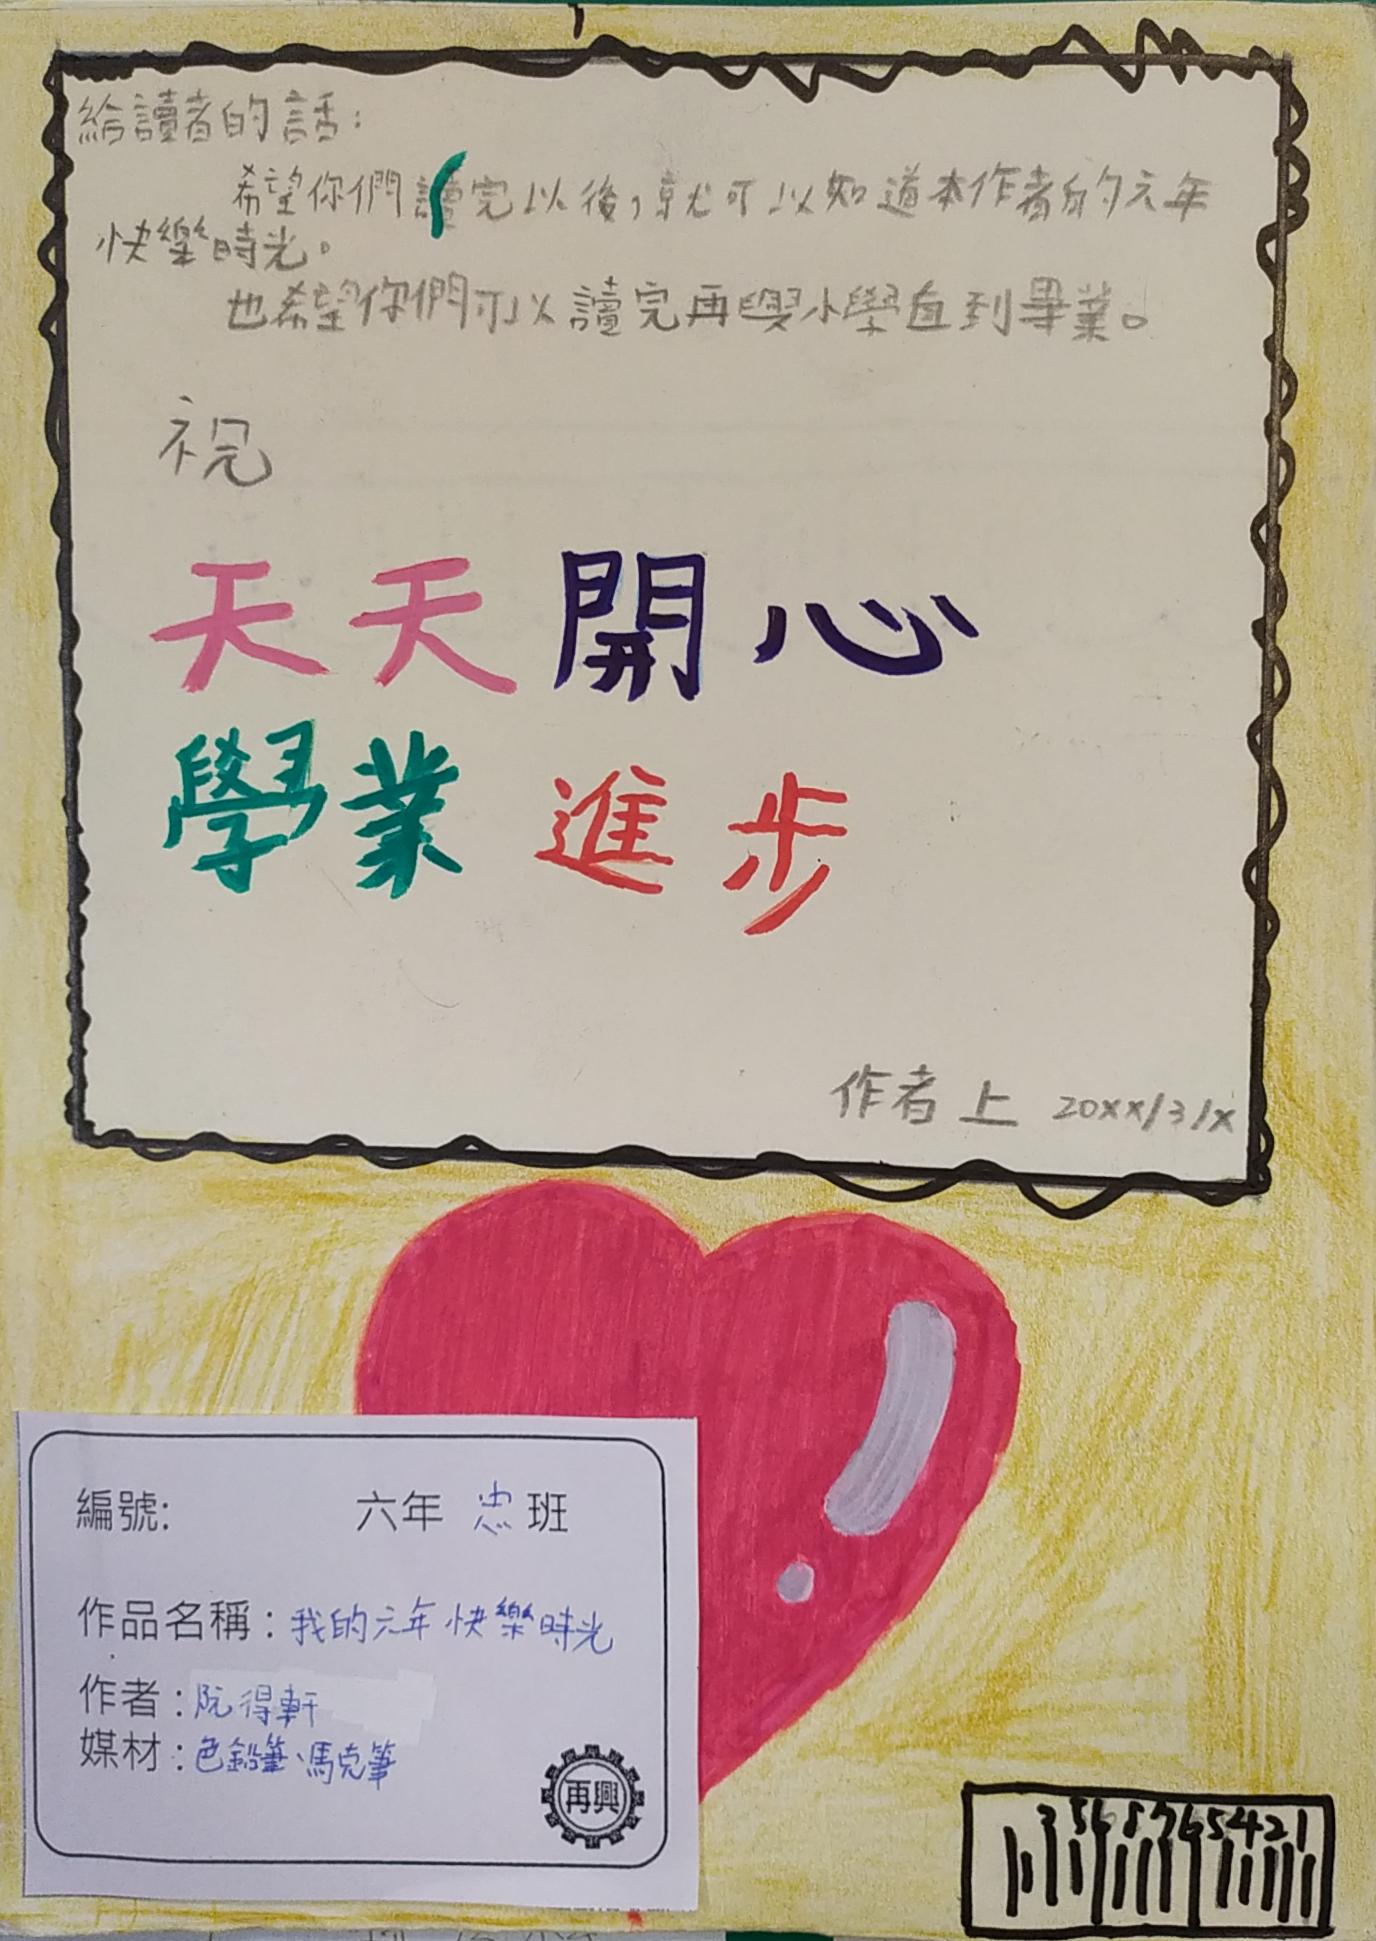 給讀者的話:
希望你們讀完以後,就可以知道本作者的六年
快樂時光。
也希望你們可以讀完再興小學直到畢業。
祝
天天開心
學業進步
作者 上 20xx/3/x
編號: 六年 忠 班
作品名稱:我的六年快樂時光
作者:阮得軒
媒材:色鉛筆、馬克筆
再興